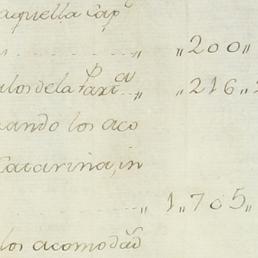 aquella Cap.ª
„ „200„
ulos de la Parx.al „ „216„
uando los aco
Catarina, in
„ 1„705„
los acomodad